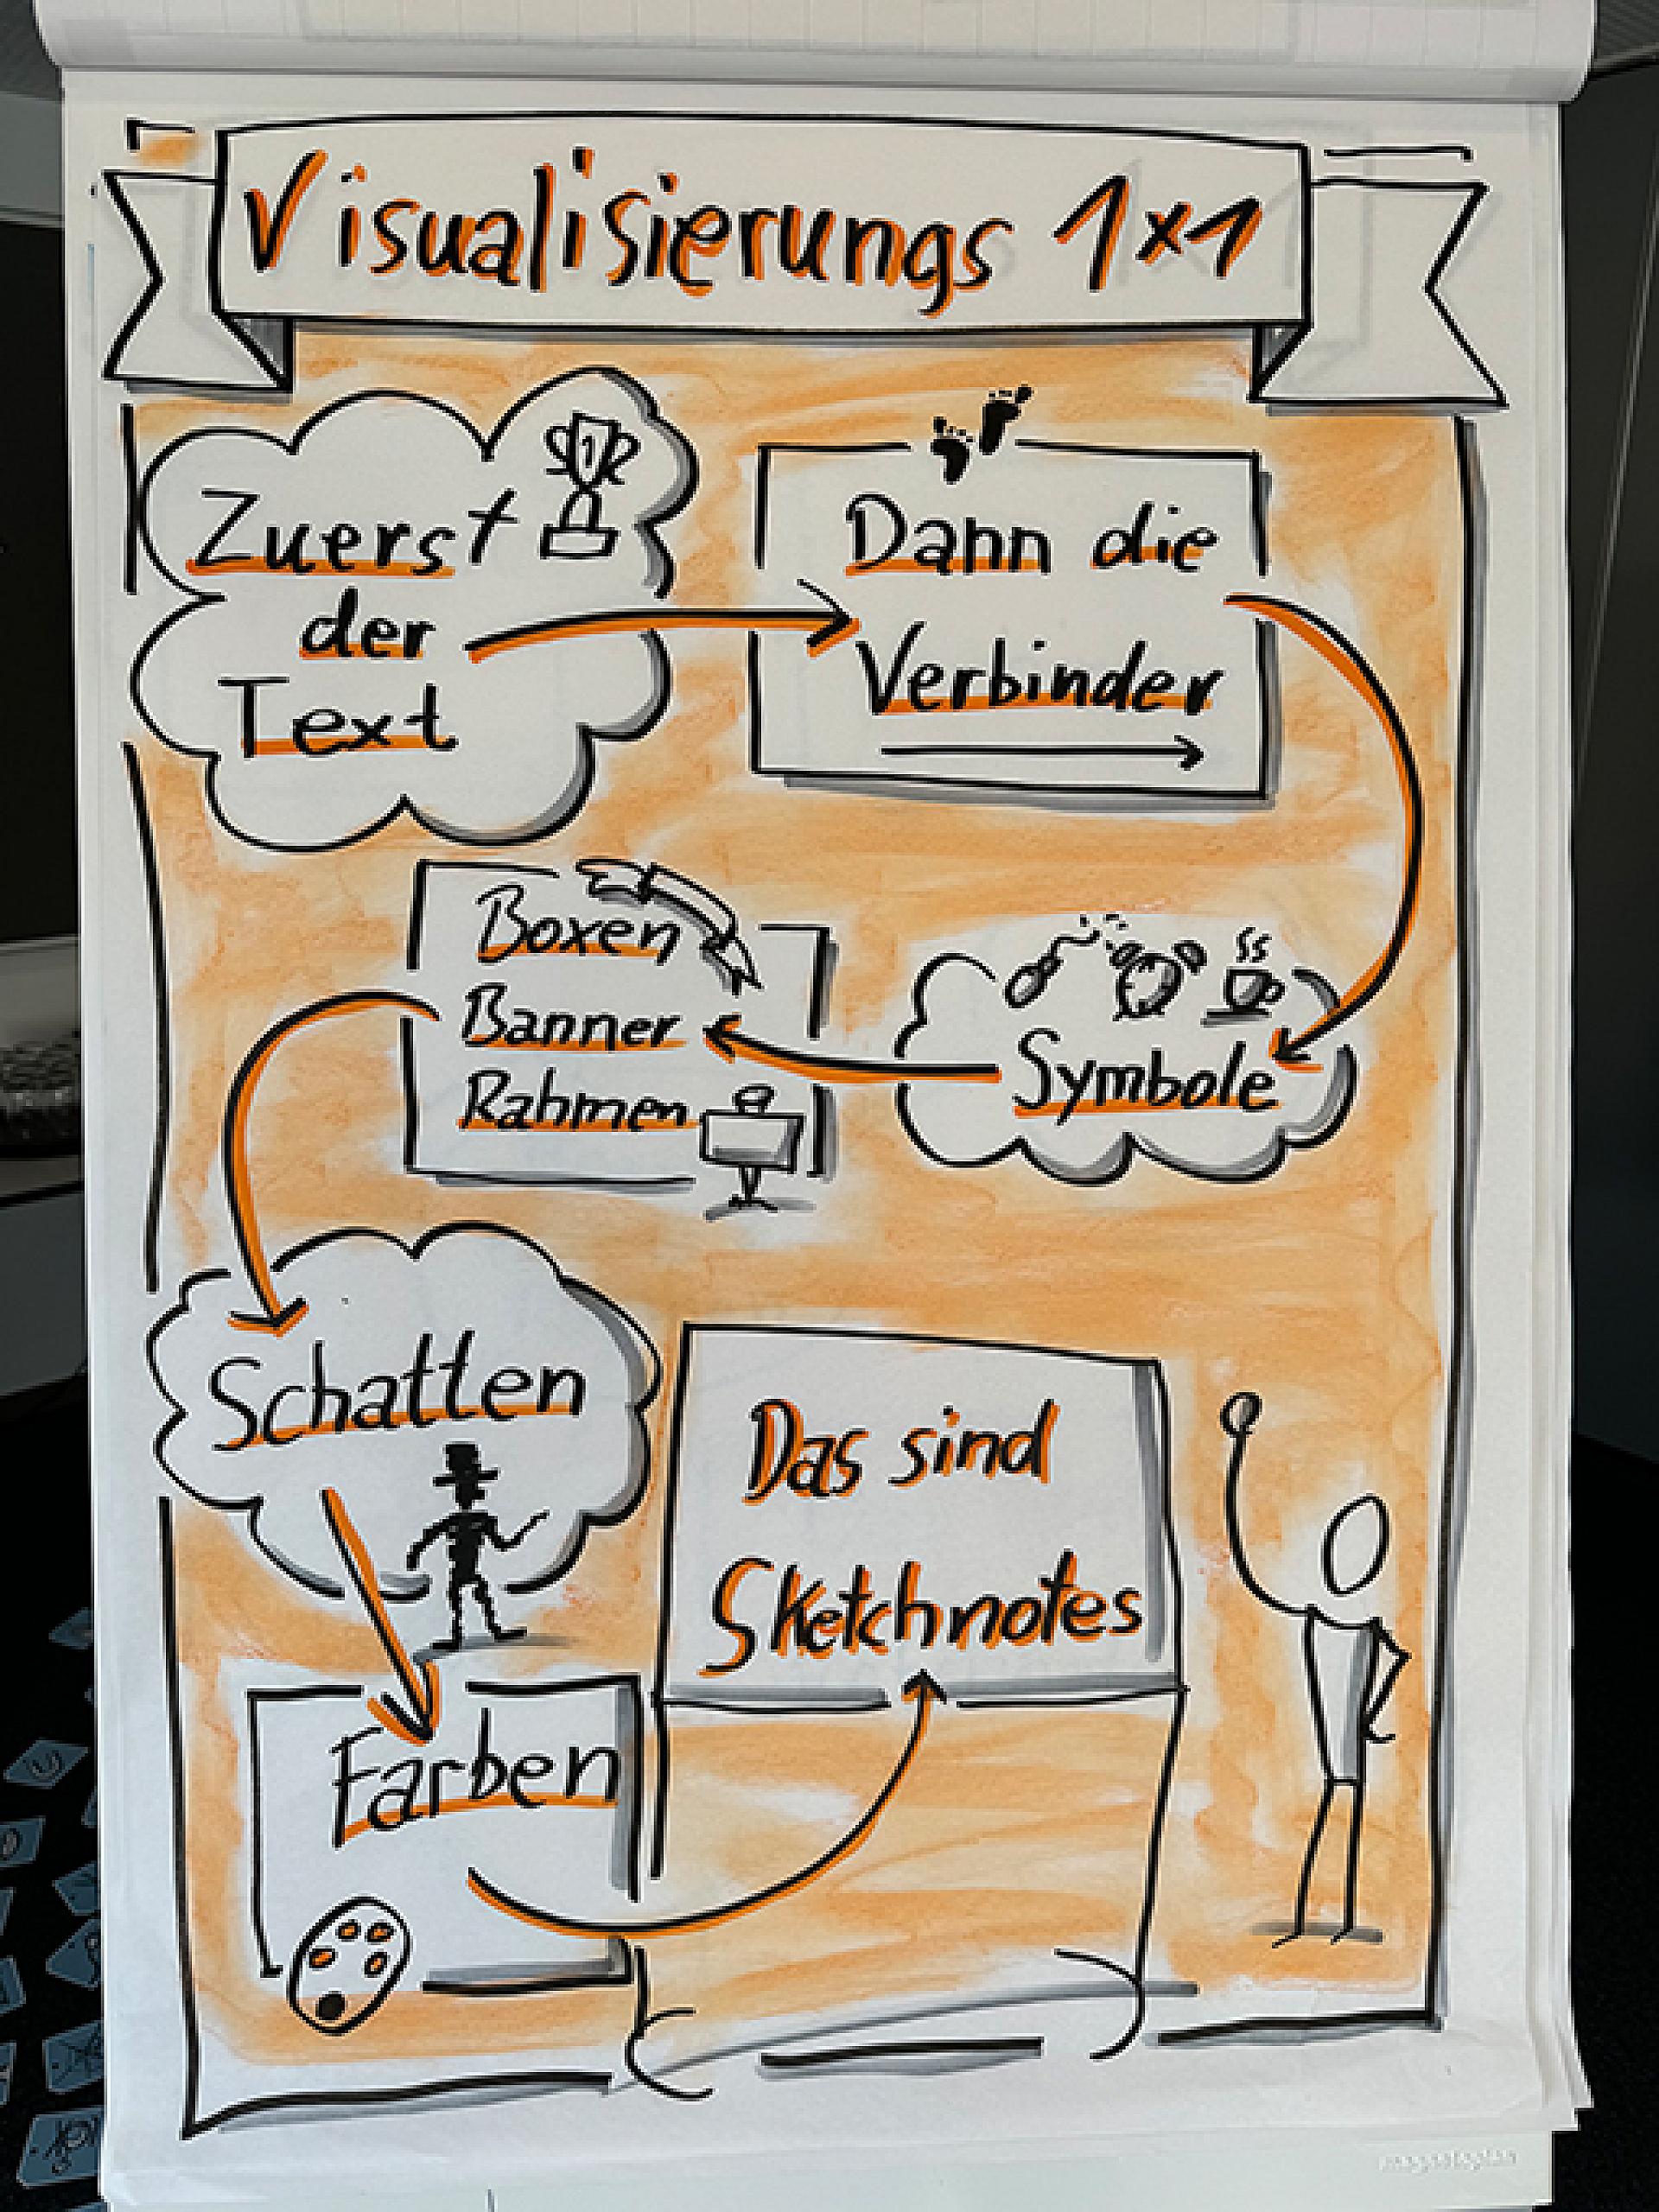 Visualisierungs 1x1
1
Zuerst
der
Text
Dann die
Verbinder
Symbole
Boxen
Banner
Rahmen
Schatten
Farben
Das sind
Sketchnotes